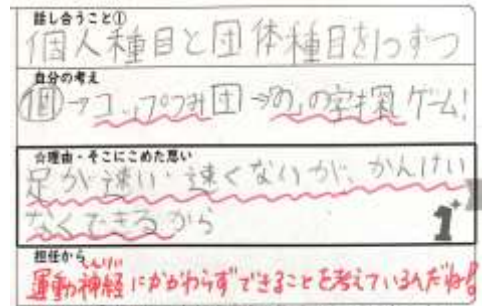 話し合うこと①
個人種目と団体種目を1つずつ
自分の考え
個→コップつみ団→の、の宝探しゲーム!
☆理由・そこにこめた思い
足が速い、速くないが、かんけい
なくできるから
1+
担任から
運動神経にかかわらずできることを考えているんだね!
しんけい